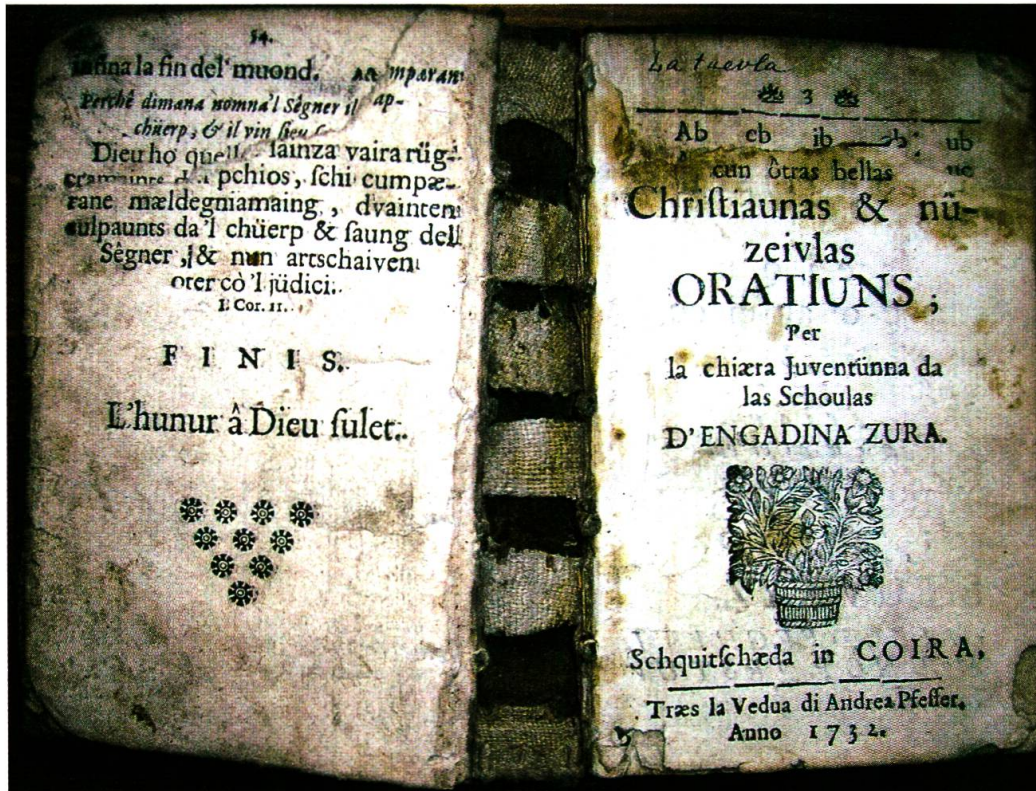 14.
infina la fin del' muond.
Perchê dimana nomna'l Sêgner il ap-
chüerp, & il vin sieu
Dieu ho quell sainza vaira rüg-
pchios, ſchi cumpæ-
rane mældegniamaing, dvainten
culpaunts da'l chüerp & ſaung dell
Sêgner, & nun artſchaiven
oter cò 'l jüdici.
I. Cor. 11.
F I N I S.
L'hunur â Dieu ſulet.
La tuevla
3
Ab eb ib ob ub
cun ôtras bellas
Chriſtiaunas & nü-
zeivlas
ORATIUNS,
Per
la chiæra Juventünna da
las Schoulas
D'ENGADINA ZURA.
Schquitſchæda in COIRA,
Træs la Vedua di Andrea Pfeffer.
Anno 1732.